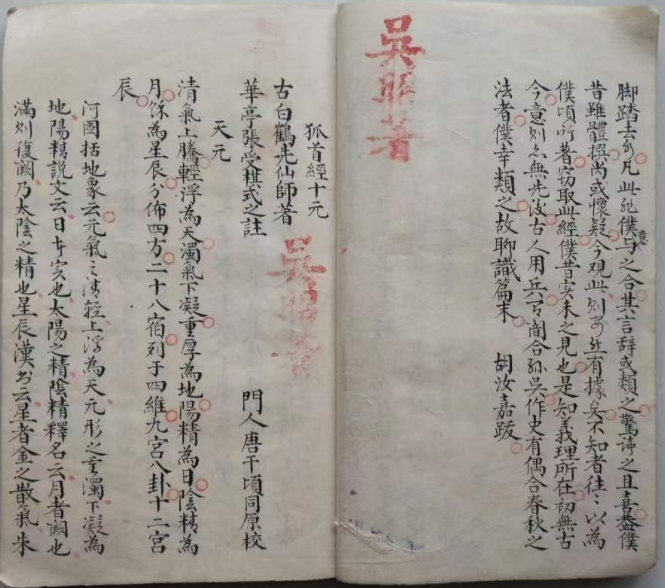 脚踏去矣凡此地僕与之合其言辞或類之驚訝之且喜蓋僕
意
昔雖體撰尚或懷疑今观此則皆有據矣不知者往々以為
僕頃所著窃取此經僕昔实未之見也是知義理所在初無古
今意到亦無先後古人用兵有闇合孫吳作史有偶合春秋之
法者僕幸類之故聊識篇末 胡汝嘉跋
吳昭著
狐首經十元
古白鶴先仙師著
華亭張受椎式之註 門人唐干頃同原校
吳昭著
天元
清氣上騰輕浮為天濁氣下凝重厚為地陽精為日陰精為
月餘為星辰分佈四方二十八宿列于四維九宮八卦十二宮
辰
河圖括地象云元氣之清輕上浮為天元形之重濁下凝為
地陽精説文云日实也太陽之精陰精釋名云月者阙也
滿則復阙乃太陰之精也星辰漢書云星者金之散氣朱